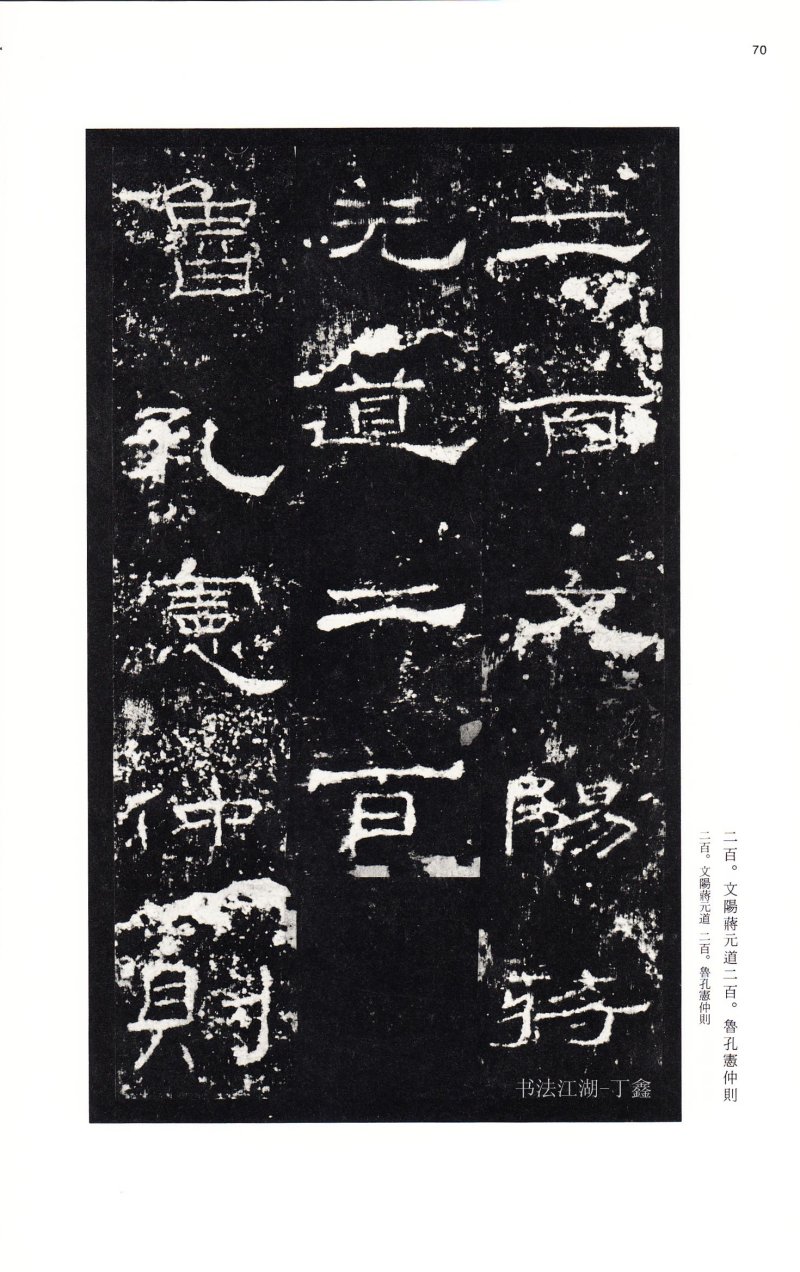 70
二百文陽蔣
元道
二百
魯孔憲仲則
书法江湖-丁鑫
二百。文陽蔣元道二百。魯孔憲仲則
二百。文陽蔣元道 二百。魯孔憲仲則